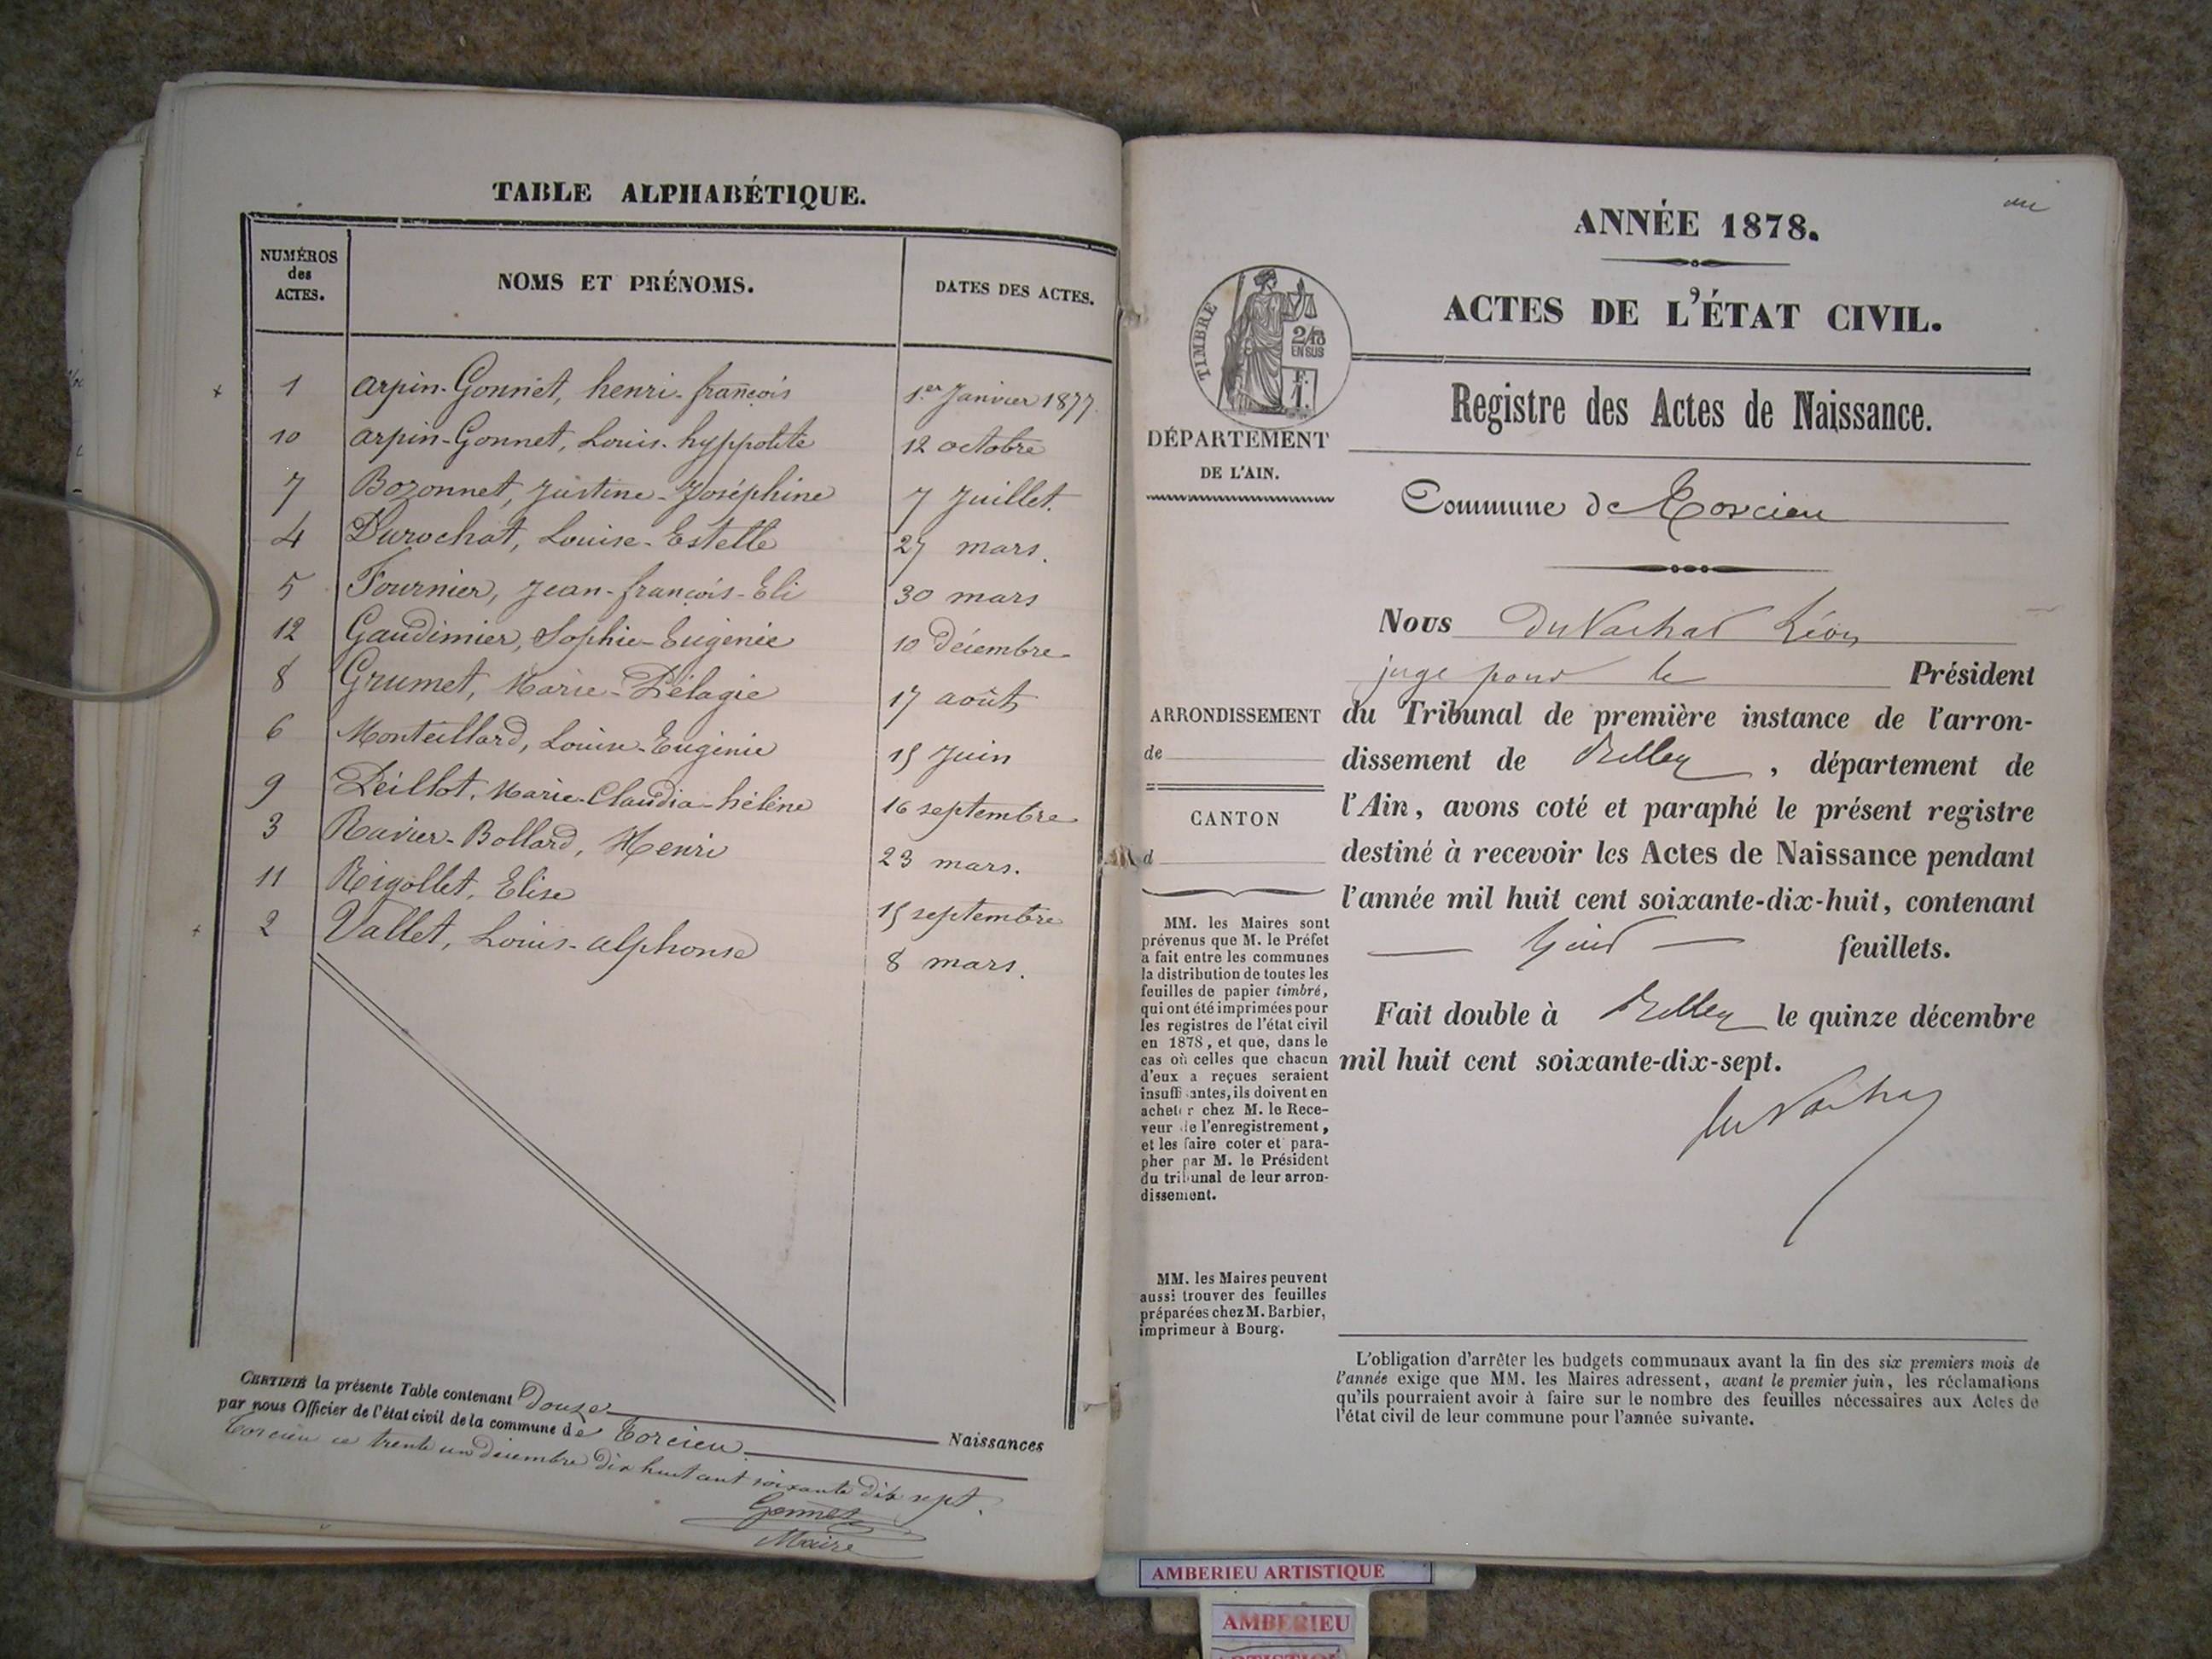 TABLE ALPHABÉTIQUE.
NUMÉROS des ACTES.
NOMS ET PRÉNOMS.
DATES DES ACTES.
1 arpin-Gonnet, henri-françois 1.er Janvier 1877.
10 arpin-Gonnet, Louis-hyppolite 12 octobre
7 Bozonnet, Justine-Joséphine 7 Juillet.
4 Durochat, Louise-Estelle 27 mars.
5 Fournier, Jean-françois-Eli 30 mars
12 Gaudimier, Sophie-Eugénie 10 Décembre
8 Grumet, Marie-Pélagie 17 août
6 Monteillard, Louise-Eugénie 15 Juin
9 Peillot, Marie-Claudia-hélène 16 septembre
3 Ravier-Bollard, Henri 23 mars.
11 Rigollet, Elise 15 septembre
2 Vallet, Louis-alphonse 8 mars.
CERTIFIÉ la présente Table contenant Douze Naissances
par nous Officier de l'état civil de la commune de Torcieu.
Torcieu ce trente un Décembre Dix huit cent soixante dix sept.
Gonnet
Maire
ANNÉE 1878.
ACTES DE L'ÉTAT CIVIL.
TIMBRE
2/10
EN SUS
F.
1.
Registre des Actes de Naissance.
DÉPARTEMENT
DE L'AIN.
Commune de Torcieu
Nous DuVachat Léon
juge pour le Président
du Tribunal de première instance de l'arron-
dissement de Belley, département de
l'Ain, avons coté et paraphé le présent registre
destiné à recevoir les Actes de Naissance pendant
l'année mil huit cent soixante-dix-huit, contenant
feuillets.
Fait double à Belley le quinze décembre
mil huit cent soixante-dix-sept.
DuVachat
ARRONDISSEMENT
de
CANTON
d
MM. les Maires sont
prévenus que M. le Préfet
a fait entre les communes
la distribution de toutes les
feuilles de papier timbré,
qui ont été imprimées pour
les registres de l'état civil
en 1878, et que, dans le
cas où celles que chacun
d'eux a reçues seraient
insuffisantes, ils doivent en
acheter chez M. le Rece-
veur de l'enregistrement,
et les faire coter et para-
pher par M. le Président
du tribunal de leur arron-
dissement.
MM. les Maires peuvent
aussi trouver des feuilles
préparées chez M. Barbier,
imprimeur à Bourg.
L'obligation d'arrêter les budgets communaux avant la fin des six premiers mois de
l'année exige que MM. les Maires adressent, avant le premier juin, les réclamations
qu'ils pourraient avoir à faire sur le nombre des feuilles nécessaires aux Actes de
l'état civil de leur commune pour l'année suivante.
AMBERIEU ARTISTIQUE
AMBERIEU
ARTISTIQUE